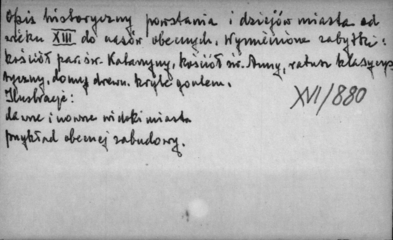 Opis historyczny powstania i dziejów miasta od
wieku XIII do czasów obecnych. Wymienione zabytki:
kościół par. św. Katarzyny, kościół św. Anny, ratusz klasycys
tyczny, domy drewn. kryte gontem.
Ilustracje:
dawne i nowsze widoki miasta
przykład obecnej zabudowy.
XVI/880